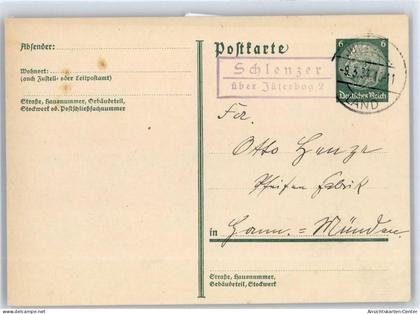 Absender:
Wohnort:
(auch Zustell- oder Leitpostamt)
Straße, Hausnummer, Gebäudeteil,
Stockwerk od. Postschließfachnummer
Postkarte
6 6
Deutsches Reich
LAND
Schlenzer
über Jüterbog 2
Fa.
Otto Henze
Pfeifen Fabrik
in Hann.=Münden
Straße, Hausnummer,
Gebäudeteil, Stockwerk
Copyright Ansichtskarten-Center